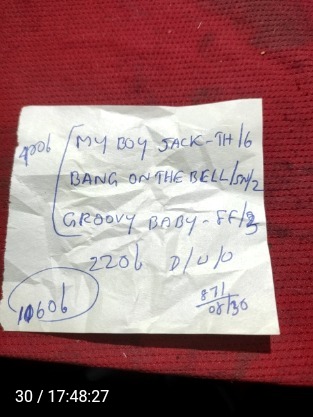 MY BOY JACK-TH/6
BANG ON THE BELL/SN/2
GROOVY BABY-
220b D/U/O
871
08/30
30 / 17:48:27